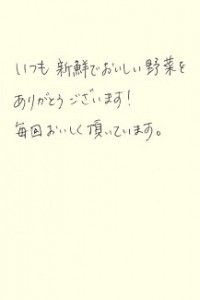 いつも新鮮でおいしい野菜を
ありがとうございます!
毎回おいしく頂いています。